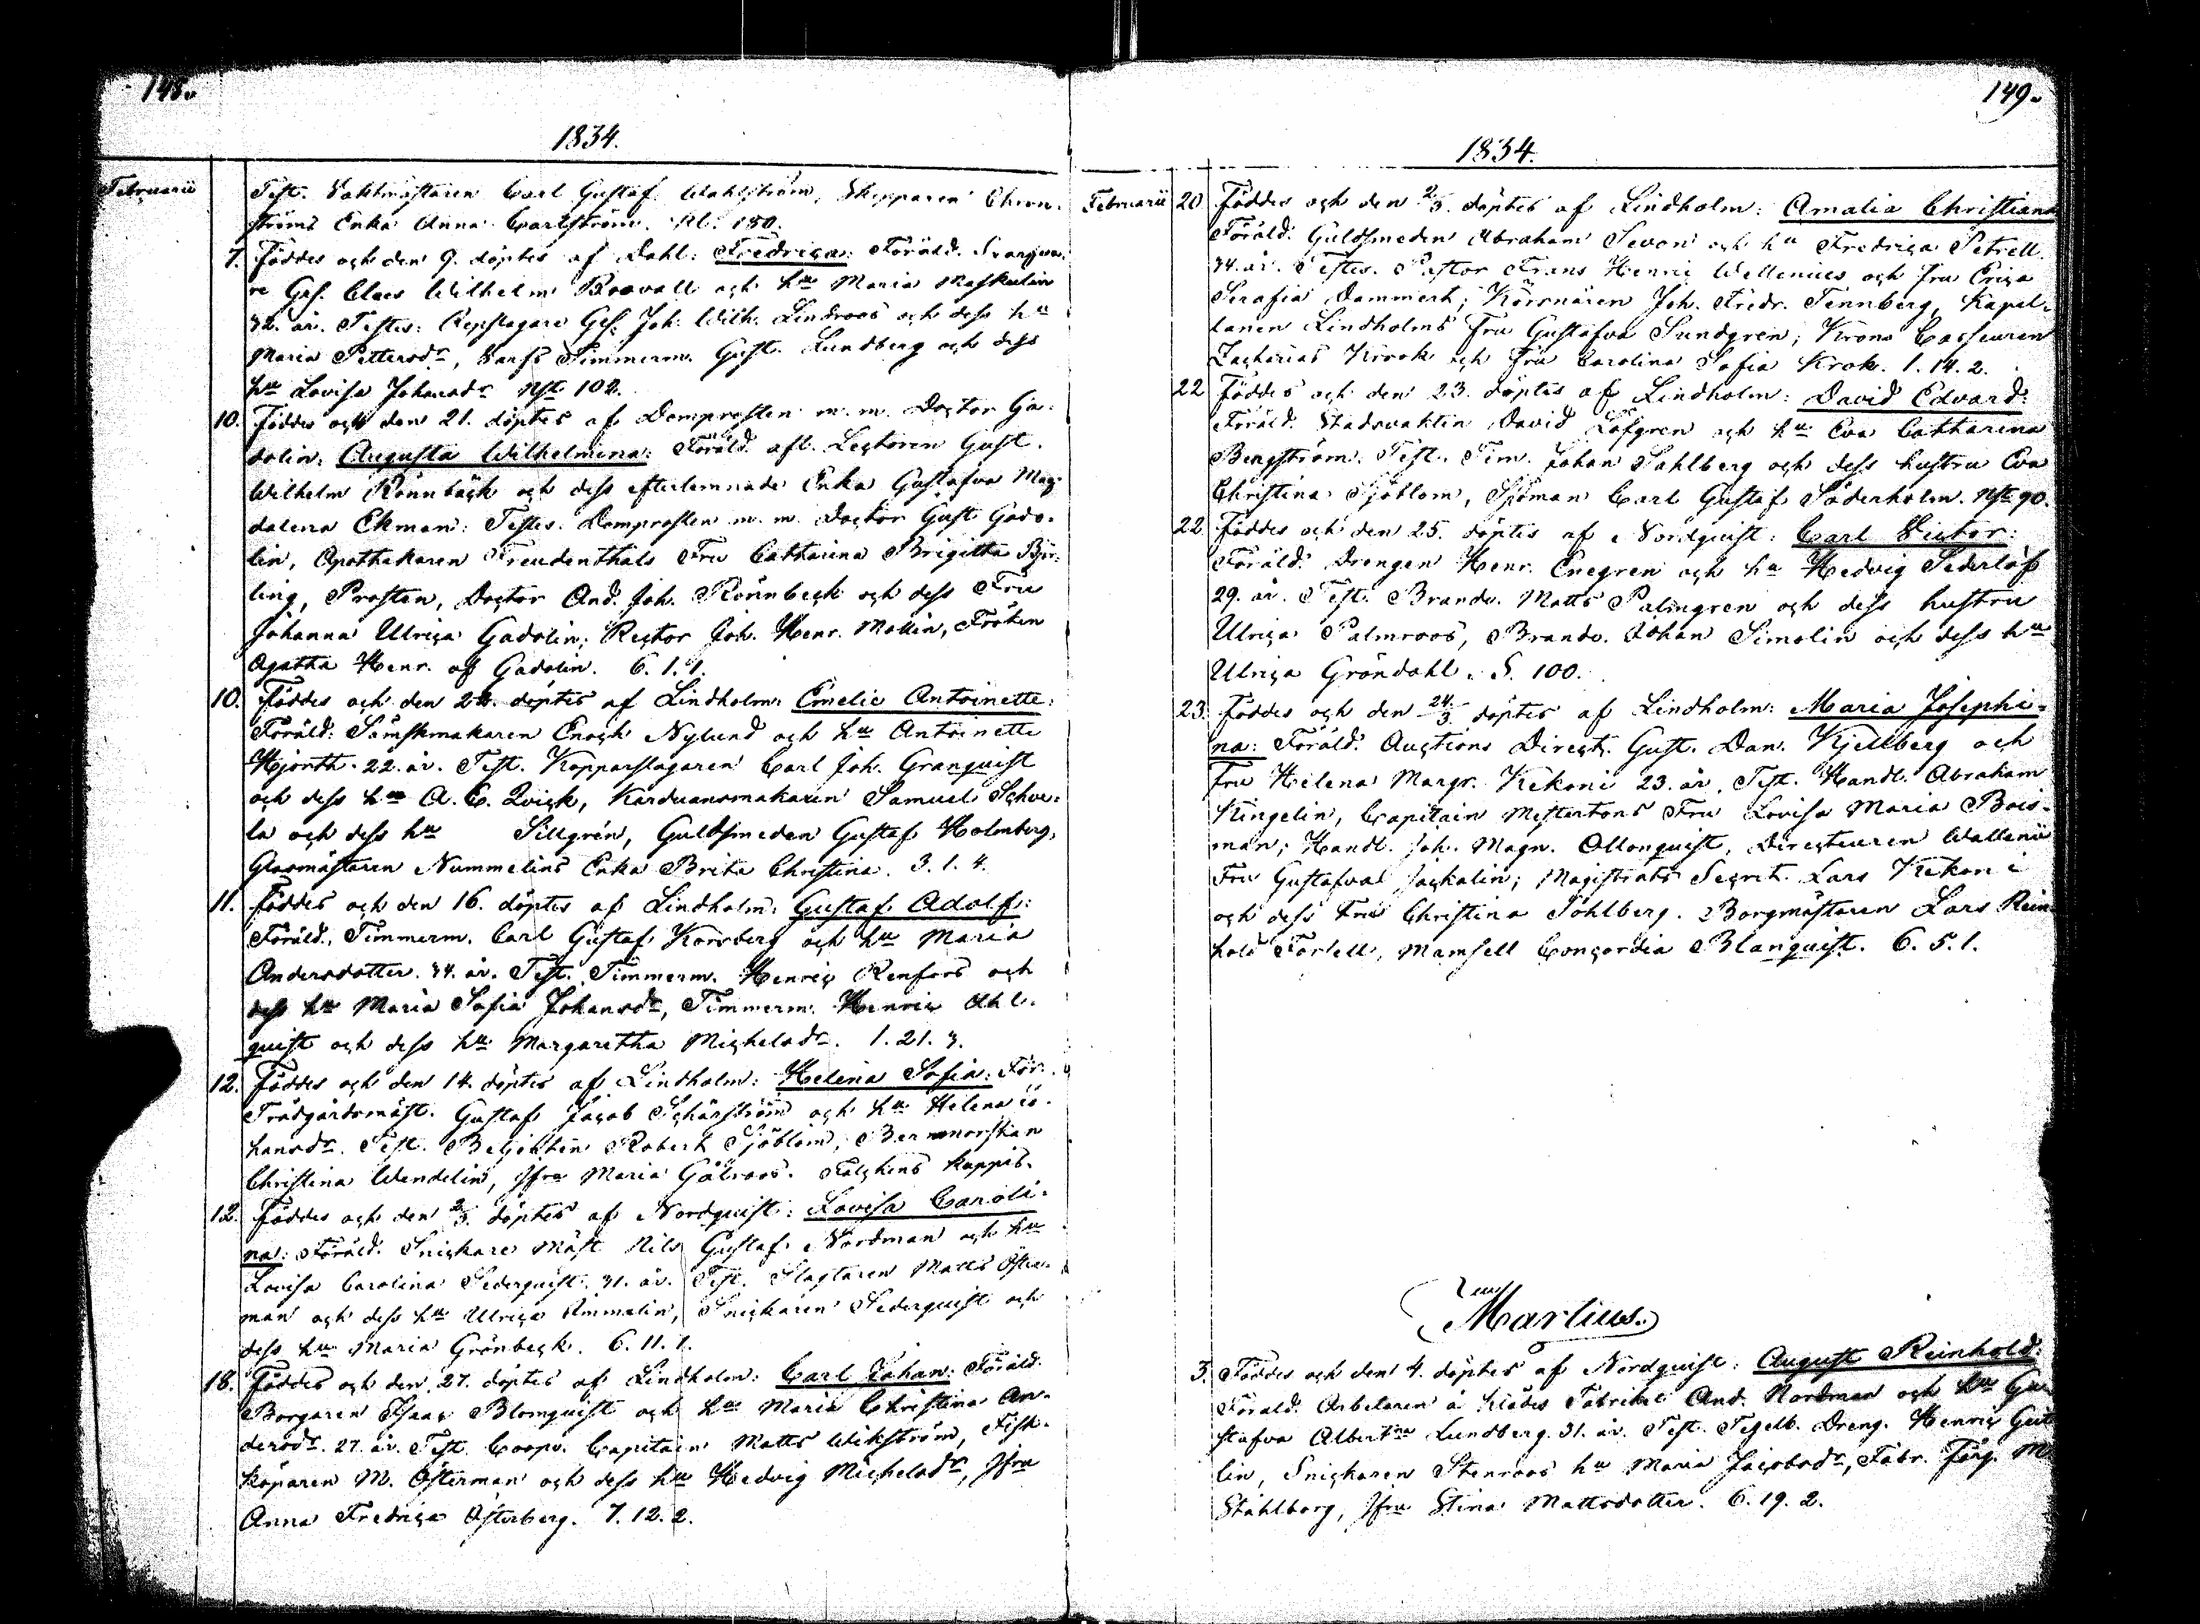 148.
1834.
Februarii
Test. Vaktmästaren Carl Gustaf Wahlström, Skepparen Chron-
ströms Enka Anna Carlström. Kl. 180.
7. Föddes och den 9. döptes af Dahl: Fredrica: Föräld.
re Ges. Claes Wilhelm Boovall och hu Maria Maskulin
32. år. Testes: Repslagare Ges. Joh. Wilh. Lindroos och dess hu
Maria Pettersdr, Varfs Timmerm. Gust. Lundberg och dess
hu Lovisa Johansdr Nst 102.
10. Föddes och den 21. döptes af Domprosten m. m. Doctor Ga-
dolin: Augusta Wilhelmina: Föräld. afl. Lectoren Gust.
Wilhelm Rönnbäck och dess efterlemnade Enka Gustafva Mag-
dalena Ekman: Testes. Domprosten m. m. Doctor Gust. Gado-
lin, Apothekaren Freudenthals Fru Catharina Brigitta Bjur-
ling, Prosten, Doctor And. Joh. Rönnbeck och dess Fru
Johanna Ulrica Gadolin; Rector Joh. Henr. Mollin, Fröken
Agatha Henr. af Gadolin. 6. 1. 1.
10. Föddes och den döptes af Lindholm: Emelie Antoinette:
Föräld: Sämskmakaren Enoch Nylund och hu Antoinette
Hjorth. 22. år. Test. Kopparslagaren Carl Joh. Granquist
och dess hu A. C. Qvick, Karduansmakaren Samuel Schve-
la och dess hu Sillgrén, Guldsmeden Gustaf Holmberg,
Glasmästaren Nummelins Enka Brita Christina. 3. 1. 4.
11. Föddes och den 16. döptes af Lindholm: Gustaf Adolf:
Föräld. Timmerm. Carl Gustaf Korsberg och hu Maria
Andersdotter. 34. år. Test. Timmerm. Henric Renfors och
dess hu Maria Sofia Johansdr, Timmerm. Henric Ahl-
quist och dess hu Margaretha Michelsdr. 1. 21. 3.
12. Föddes och den 14. döptes af Lindholm: Helena Sofia: För.
Trädgårdsmäst. Gustaf Jacob Schärström och hu Helena Jo-
hansdr. Test. Betjenten Robert Sjöblom, Barnmorskan
Christina Wendelin, Jfru Maria Gåhroos. Fältskens kuppis.
12. Föddes och den 2/3. döptes af Nordquist: Lovisa Caroli-
na: Föräld. Snickare Mäst. Nils Gustaf Nordman och hu
Lovisa Carolina Sederquist. 31. år. Test. Slagtaren Matts Öster-
man och dess hu Ulrica Ammelin, Snickaren Sederquist och
dess hu Maria Grönbeck. 6. 11. 1.
18. Föddes och den 27. döptes af Lindholm: Carl Johan: Föräld.
Borgaren Isaac Blomquist och hu Maria Christina An-
dersdr. 27. år. Test. Coopv. Capitain Matts Wikström, Fisk-
köparen M. Österman och dess hu Hedvig Michelsdr, Jfru
Anna Fredrica Österberg. 7. 12. 2.
149.
1834.
Februarii
20 Föddes och den 2/3. döptes af Lindholm: Amalia Christiana
Föräld. Guldsmeden Abraham Sevon och hu Fredrica Petrell.
34. år. Testes. Pastor Frans Henric Wellenius och fru Erica
Serafia Dammert; Körsnären Joh. Fredr. Tennberg, Kapel-
lanen Lindholms Fru Gustafva Sundgren; Krono Casseuren
Zacharias Krook och Fru Carolina Sofia Krok. 1. 14. 2.
22 Föddes och den 23. döptes af Lindholm: David Edvard:
Föräld. Stadsvakten David Löfgren och hu Eva Catharina
Bengström. Test. Tim. Johan Sahlberg och dess hustru Eva
Christina Sjöblom, Sjöman Carl Gustaf Söderholm. Nst 90.
22 Föddes och den 25. döptes af Nordquist: Carl Victor:
Föräld. Drengen Henr. Enegren och hu Hedvig Sederlöf
29. år. Test. Brandv. Matts Palmgren och dess hustru
Ulrica Palmroos, Brandv. Johan Simolin och dess hu
Ulrica Gröndahl. S. 100.
23. Föddes och den 24/3 döptes af Lindholm: Maria Josephi-
na: Föräld. Auctions Direct. Gust. Dan. Kjellberg och
Fru Helena Margr. Kekoni 23. år, Test. Handl. Abraham
Kingelin, Capitain Mestertons Fru Lovisa Maria Bois-
man; Handl. Joh. Magn. Allonquist, Directeuren Wallenii
Fru Gustafva Jackalin; Magistrats Secret. Lars Kekoni
och dess Fru Christina Sohlberg. Borgmästaren Lars Rein-
hold Forsell, Mamsell Concordia Blanquist. 6. 5. 1.
Martius.
3. Föddes och den 4. döptes af Nordquist: August Reinhold:
Föräld. Arbetaren å Klädes Fabriken And. Nordman och hu Gu-
stafva Albertna Lundberg. 31. år. Test. Tegelb. Dreng. Henric
lin, Snickaren Stenroos hu Maria Jacobsdr, Fabr. Färg. M.
Ståhlborg, Jfru Stina Mattsdotter. 6. 19. 2.